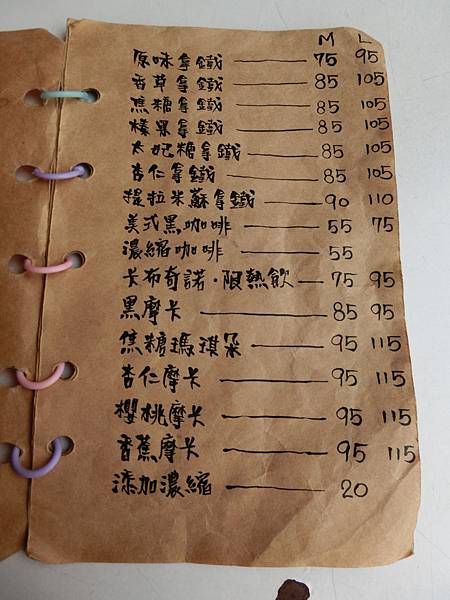 M L
原味拿鐵 75 95
香草拿鐵 85 105
焦糖拿鐵 85 105
榛果拿鐵 85 105
太妃糖拿鐵 85 105
杏仁拿鐵 85 105
提拉米蘇拿鐵 90 110
美式黑咖啡 55 75
濃縮咖啡 55
卡布奇諾·限熱飲 75 95
黑摩卡 85 95
焦糖瑪琪朵 95 115
杏仁摩卡 95 115
櫻桃摩卡 95 115
香蕉摩卡 95 115
添加濃縮 20